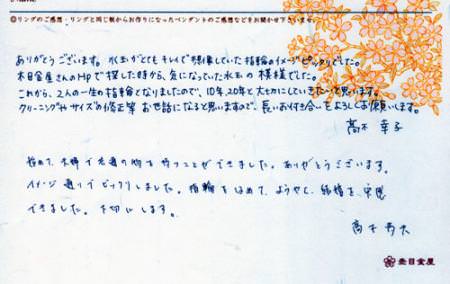 ◎リングのご感想・リングと同じ板からお作りになったペンダントのご感想などをお聞かせ下さいませ。
ありがとうございます。水玉がとてもキレイで想像していた指輪のイメージピッタリでした。
木目金屋さんのHPで探した時から、気になっていた水玉の模様でした。
これから、2人の一生の指輪となりましたので、10年、20年と大切にしていきたいと思います。
クリーニングやサイズの修正等 お世話になると思いますので、長いお付き合いをよろしくお願いします。
高木 幸子
初めて、夫婦で共通の物を持つことができました。ありがとうございます。
イメージ通りでビックリしました。指輪をはめて、ようやく、結婚を実感
できました。大切にします。
高木
杢目金屋